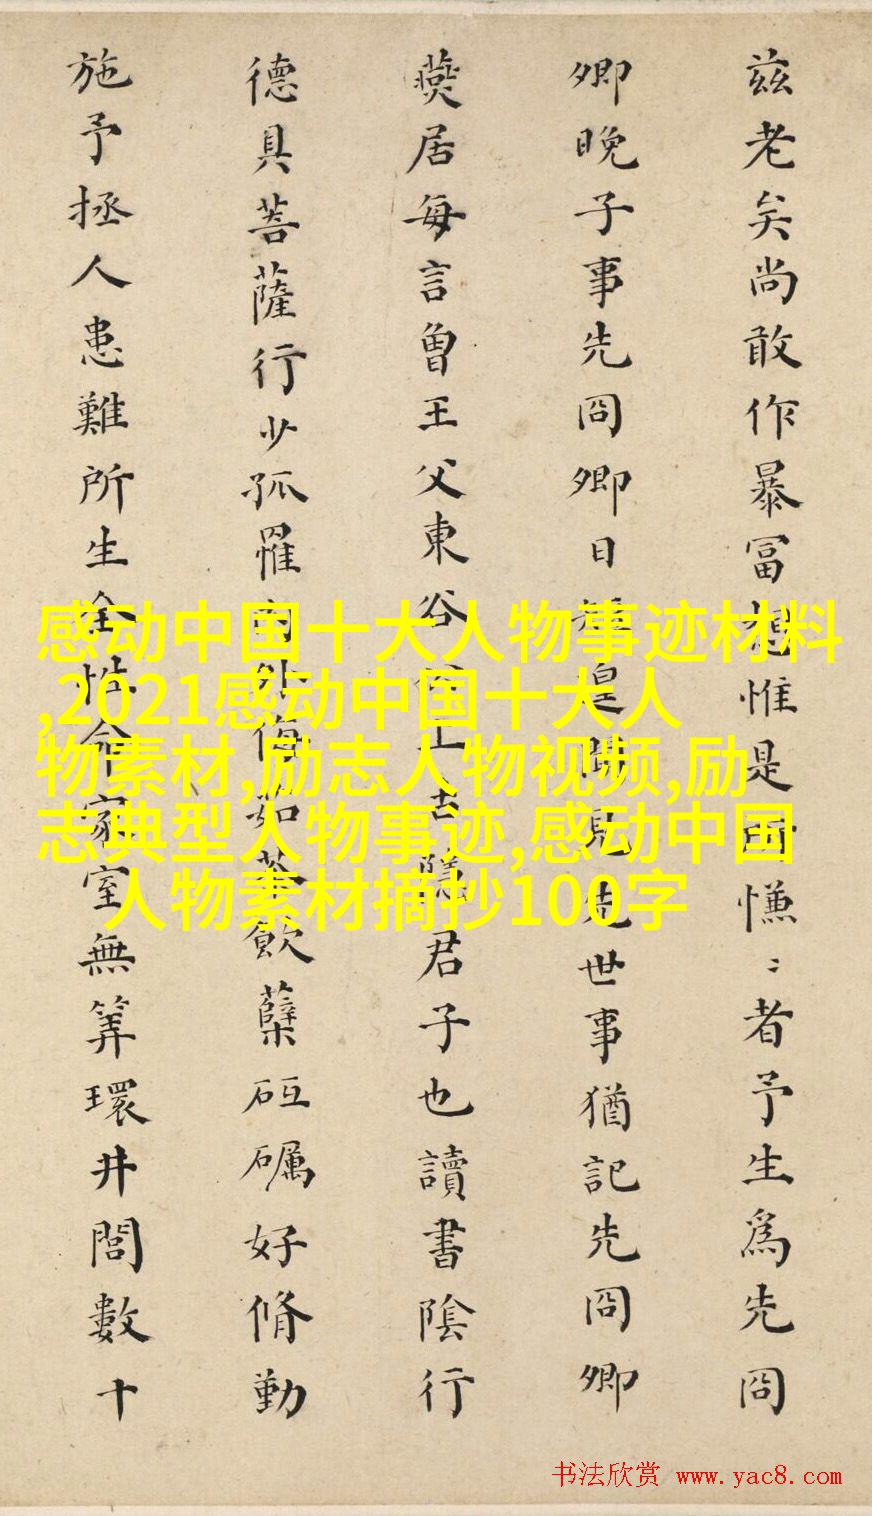 茲老矣尚敢作暴富想惟是所慊〻者予生爲先冏
卿晚子事先冏卿日短皇聞見先世事猶記先冏卿
燕居每言曾王父東谷公上吉隱君子也讀書陰行
德具菩薩行少孤罹內外侮茹荼飲蘖砥礪好脩勤
施予拯人患難所生全性命家室無筭環井閭數十
感动中国十大人物事迹材料
,2021感动中国十大人
物素材,励志人物视频,励
志典型人物事迹,感动中国
人物素材摘抄100字
书法欣赏 www.yac8.com